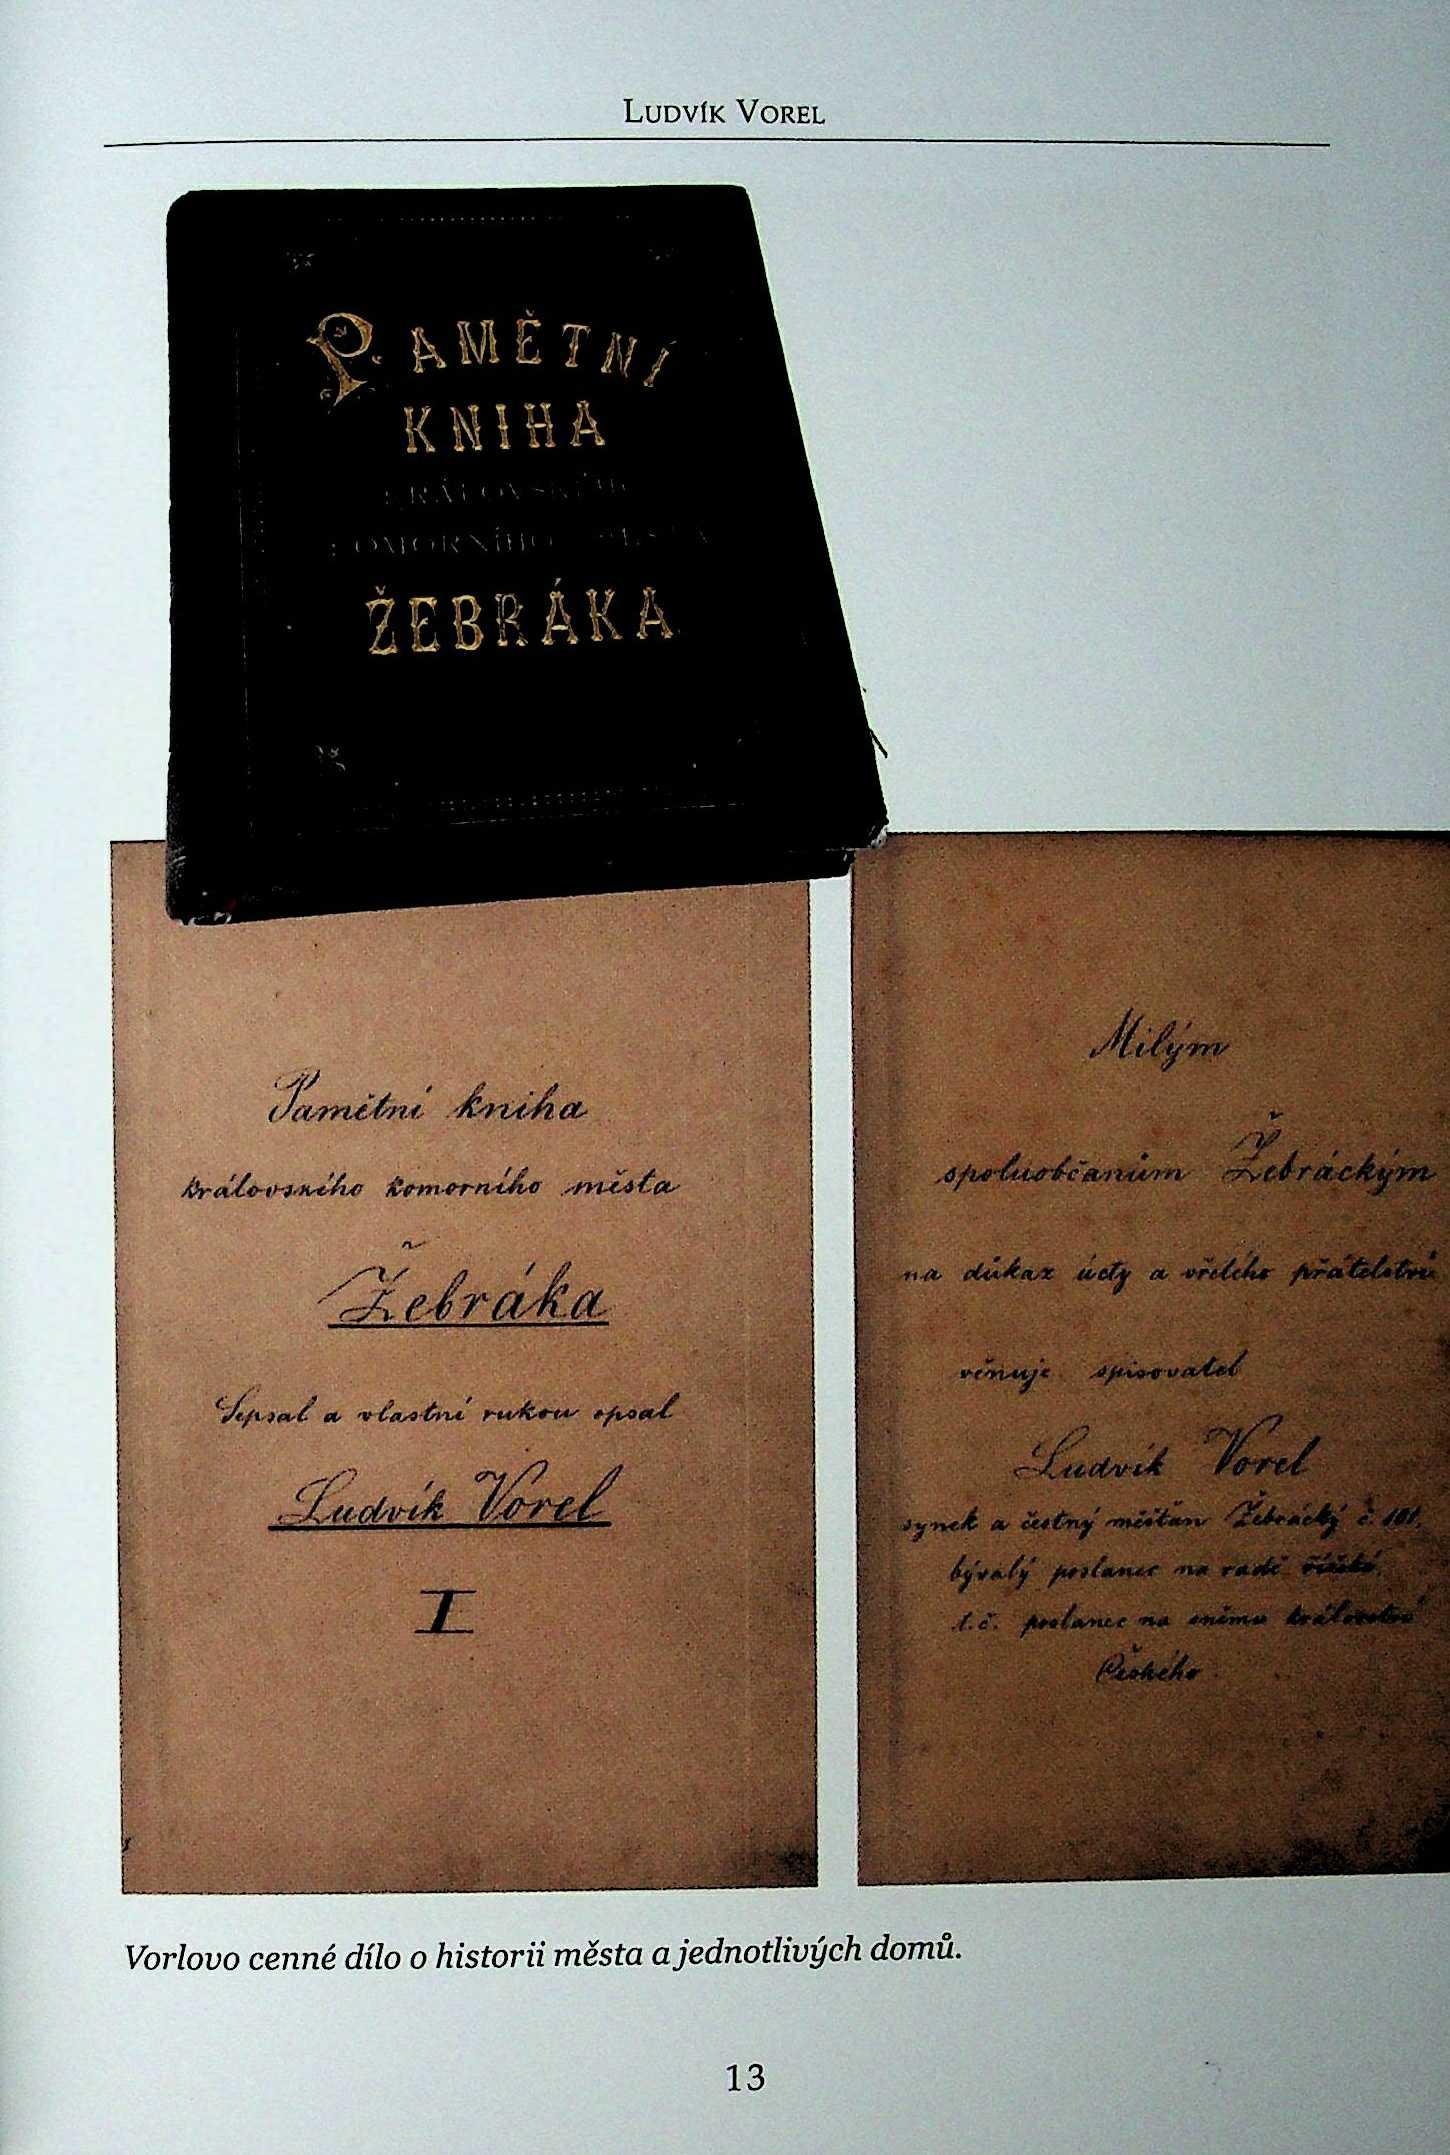 Ludvík Vorel
Pamětní
kniha
královského
komorního města
Žebráka
Pamětní kniha
královského komorního města
Žebráka
Sepsal a vlastní rukou opsal
Ludvík Vorel
I
Milým
spoluobčanům Žebráckým
na důkaz úcty a vřelého přátelství
věnuje spisovatel
Ludvík Vorel
synek a čestný měšťan Žebrácký č. 101,
bývalý poslanec na radě říšské,
t.č. poslanec na sněmu království
Českého.
Vorlovo cenné dílo o historii města a jednotlivých domů.
13